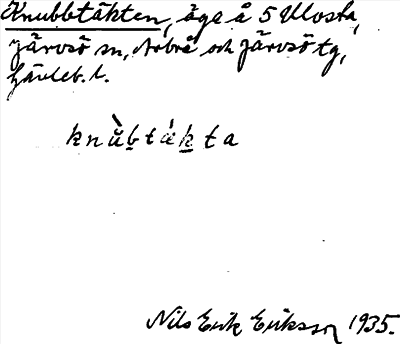 Knubbtäkten, äga å 5 Ulvsta,
Järvsö sn, Arbrå och Järvsö tg,
Gävleb. l.
knùbtákta
Nils Erik Eriksson 1935.